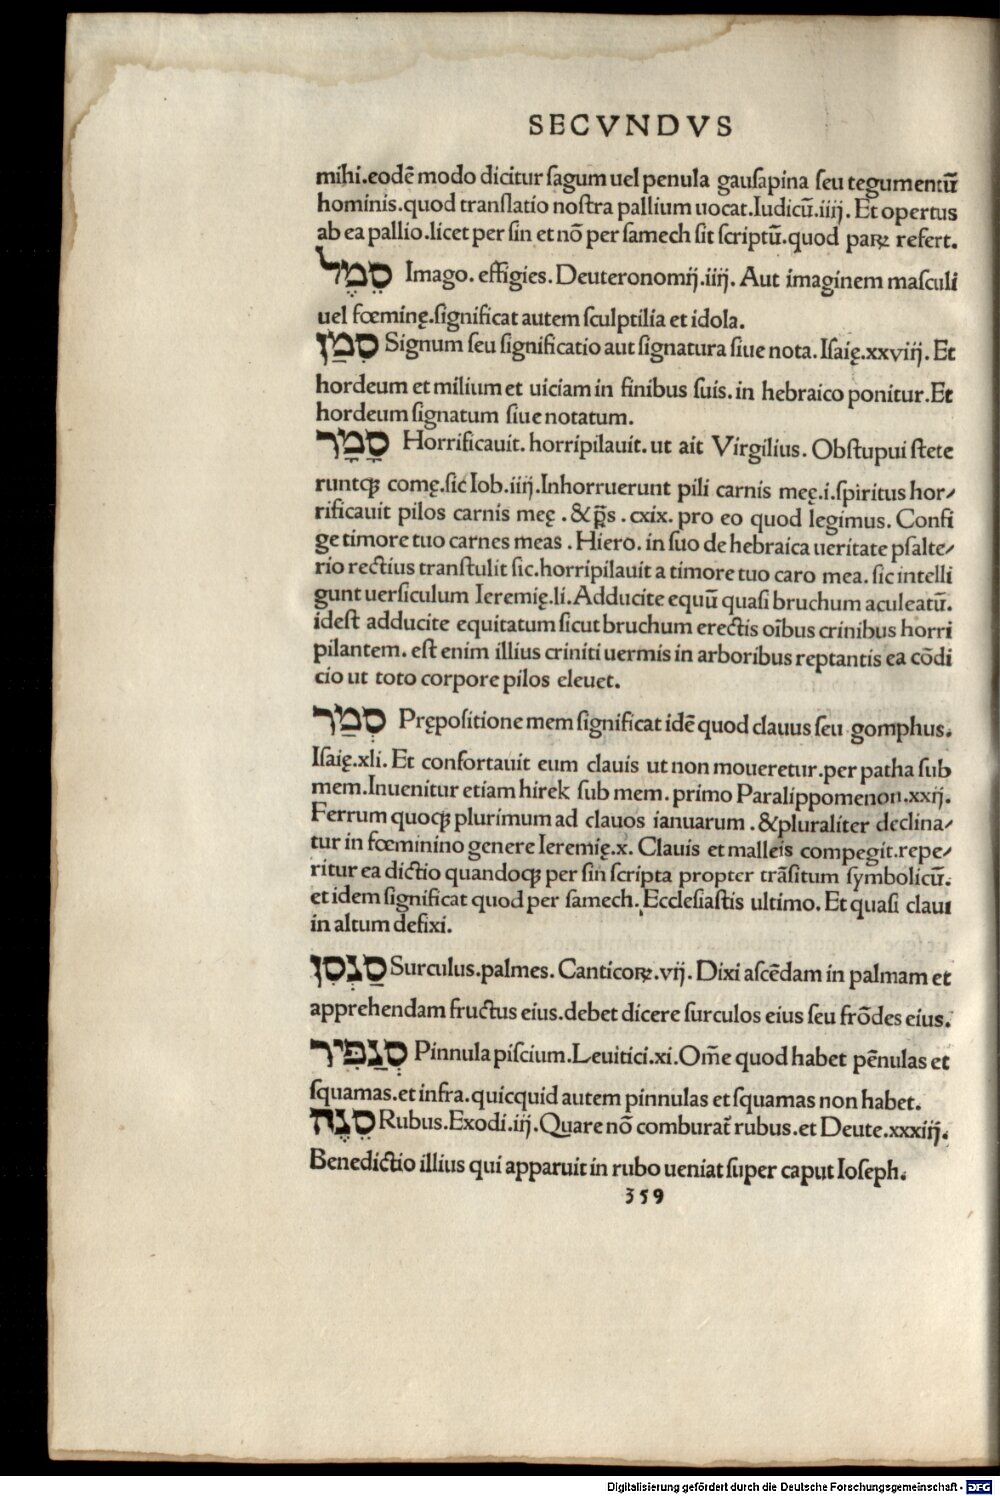 SECVNDVS
mihi.eodē modo dicitur ſagum uel penula gauſapina ſeu tegumentū
hominis.quod tranſlatio noſtra pallium uocat.Iudicū.iiij. Et opertus
ab ea pallio.licet per ſin et nō per ſamech ſit ſcriptū.quod paꝝ refert.
סֵמֶל Imago. effigies. Deuteronomij.iiij. Aut imaginem maſculi
uel fœminę.ſignificat autem ſculptilia et idola.
סִמַן Signum ſeu ſignificatio aut ſignatura ſiue nota. Iſaię.xxviij. Et
hordeum et milium et uiciam in finibus ſuis. in hebraico ponitur.Et
hordeum ſignatum ſiue notatum.
סָמָר Horrificauit. horripilauit. ut ait Virgilius. Obſtupui ſtete
runtqꝫ comę.ſic Iob.iiij.Inhorruerunt pili carnis meę.i.ſpiritus hor⸗
rificauit pilos carnis meę .&p̄s . cxix. pro eo quod legimus. Confi
ge timore tuo carnes meas . Hiero. in ſuo de hebraica ueritate pſalte⸗
rio rectius tranſtulit ſic.horripilauit a timore tuo caro mea. ſic intelli
gunt uerſiculum Ieremię.li. Adducite equū quaſi bruchum aculeatū.
ideſt adducite equitatum ſicut bruchum erectis oībus crinibus horri
pilantem. eſt enim illius criniti uermis in arboribus reptantis ea cōdi
cio ut toto corpore pilos eleuet.
סְמַר Prępoſitione mem ſignificat idē quod clauus ſeu gomphus.
Iſaię.xli. Et confortauit eum clauis ut non moueretur.per patha ſub
mem.Inuenitur etiam hirek ſub mem. primo Paralippomenon.xxij.
Ferrum quoqꝫ plurimum ad clauos ianuarum . &pluraliter declina⸗
tur in fœminino genere Ieremię.x. Clauis et malleis compegit.repe⸗
ritur ea dictio quandoqꝫ per ſin ſcripta propter trāſitum ſymbolicū.
et idem ſignificat quod per ſamech. Eccleſiaſtis ultimo. Et quaſi claui
in altum defixi.
סַנְסִן Surculus.palmes. Canticoꝝ.vij. Dixi aſcēdam in palmam et
apprehendam fructus eius.debet dicere ſurculos eius ſeu frōdes eius.
סְנַפִּיר Pinnula piſcium.Leuitici.xi.Om̄e quod habet pēnulas et
ſquamas.et infra.quicquid autem pinnulas et ſquamas non habet.
סְנֶה Rubus.Exodi.iij.Quare nō comburat̄ rubus.et Deute.xxxiij.
Benedictio illius qui apparuit in rubo ueniat ſuper caput Ioſeph.
359
Digitalisierung gefördert durch die Deutsche Forschungsgemeinschaft - DFG